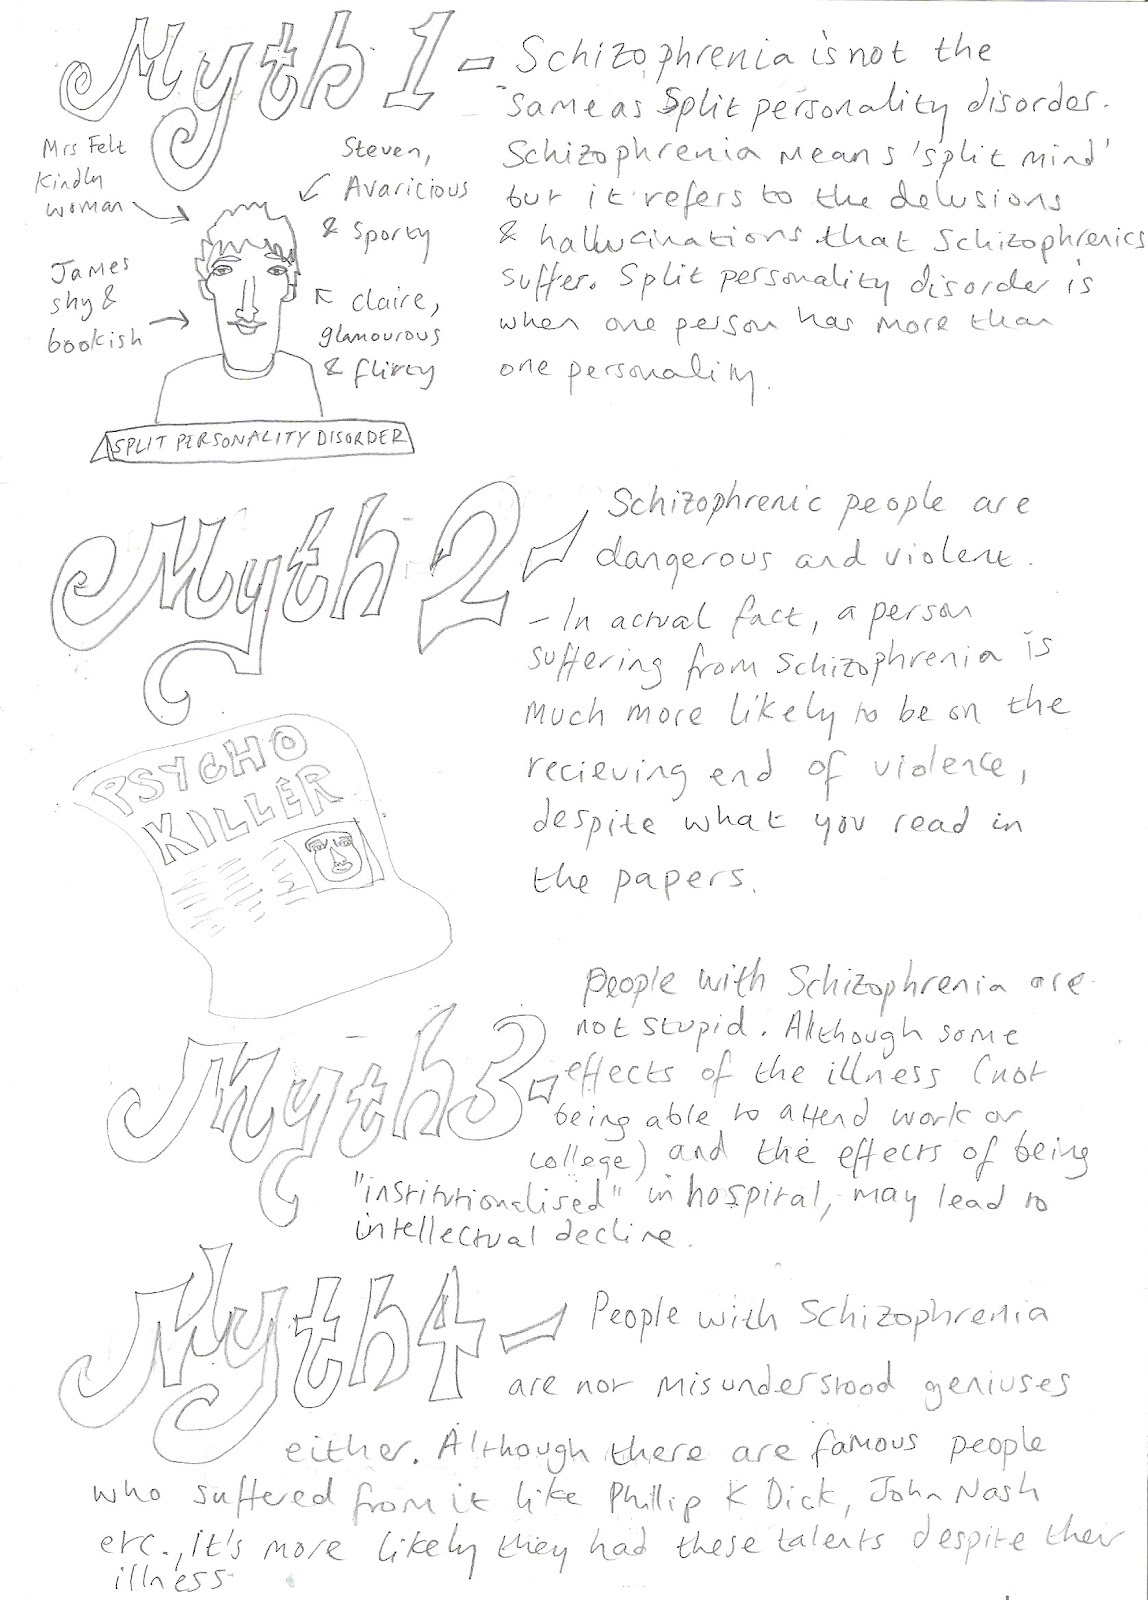 Myth 1 - Schizophrenia is not the
same as Split personality disorder.
Schizophrenia means 'split mind'
but it refers to the delusions
& hallucinations that Schizophrenics
suffer. Split personality disorder is
when one person has more than
one personality.
Mrs Felt
Kindly
woman
Steven,
Avaricious
& Sporty
James
shy &
bookish
Claire,
glamourous
& flirty
SPLIT PERSONALITY DISORDER
Myth 2 - Schizophrenic people are
dangerous and violent.
- In actual fact, a person
suffering from Schizophrenia is
much more likely to be on the
recieving end of violence,
despite what you read in
the papers.
PSYCHO
KILLER
Myth 3 - People with Schizophrenia are
not stupid. Although some
effects of the illness (not
being able to attend work or
college) and the effects of being
"institutionalised" in hospital, may lead to
intellectual decline.
Myth 4 - People with Schizophrenia
are not misunderstood geniuses
either. Although there are famous people
who suffered from it like Phillip K Dick, John Nash
etc., It's more likely they had these talents despite their
illness